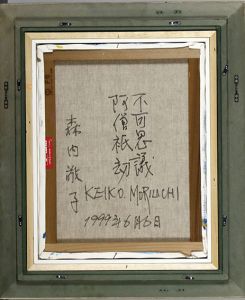 不可思議
阿僧祇劫
森内敬子
KEIKO. MORIUCHI
1999年6月6日